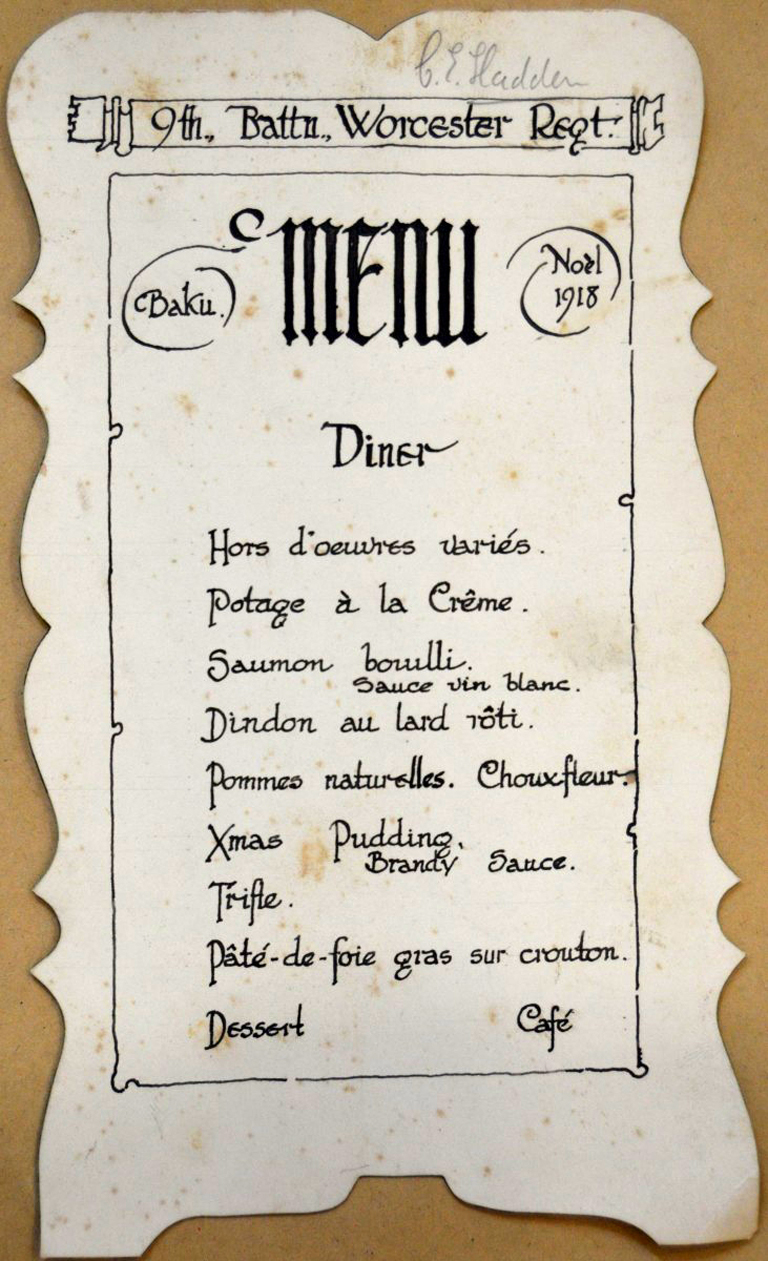 C. E. Hadden
9th., Battn., Worcester Regt.
MENU
Baku.
Noèl
1918
Diner
Hors d'oeuvres variés.
Potage à la Crême.
Saumon bouilli.
Sauce vin blanc.
Dindon au lard rôti.
Pommes naturelles. Chouxfleur.
Xmas Pudding.
Brandy Sauce.
Trifle.
Pâté-de-foie gras sur crouton.
Dessert Café